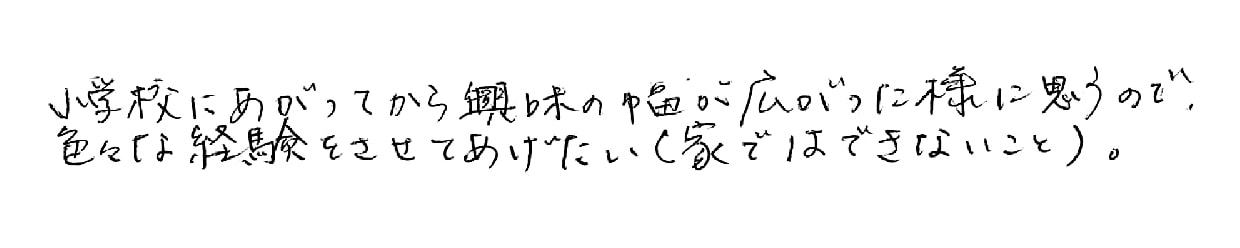 小学校にあがってから興味の幅が広がった様に思うので、
色々な経験をさせてあげたい(家ではできないこと)。